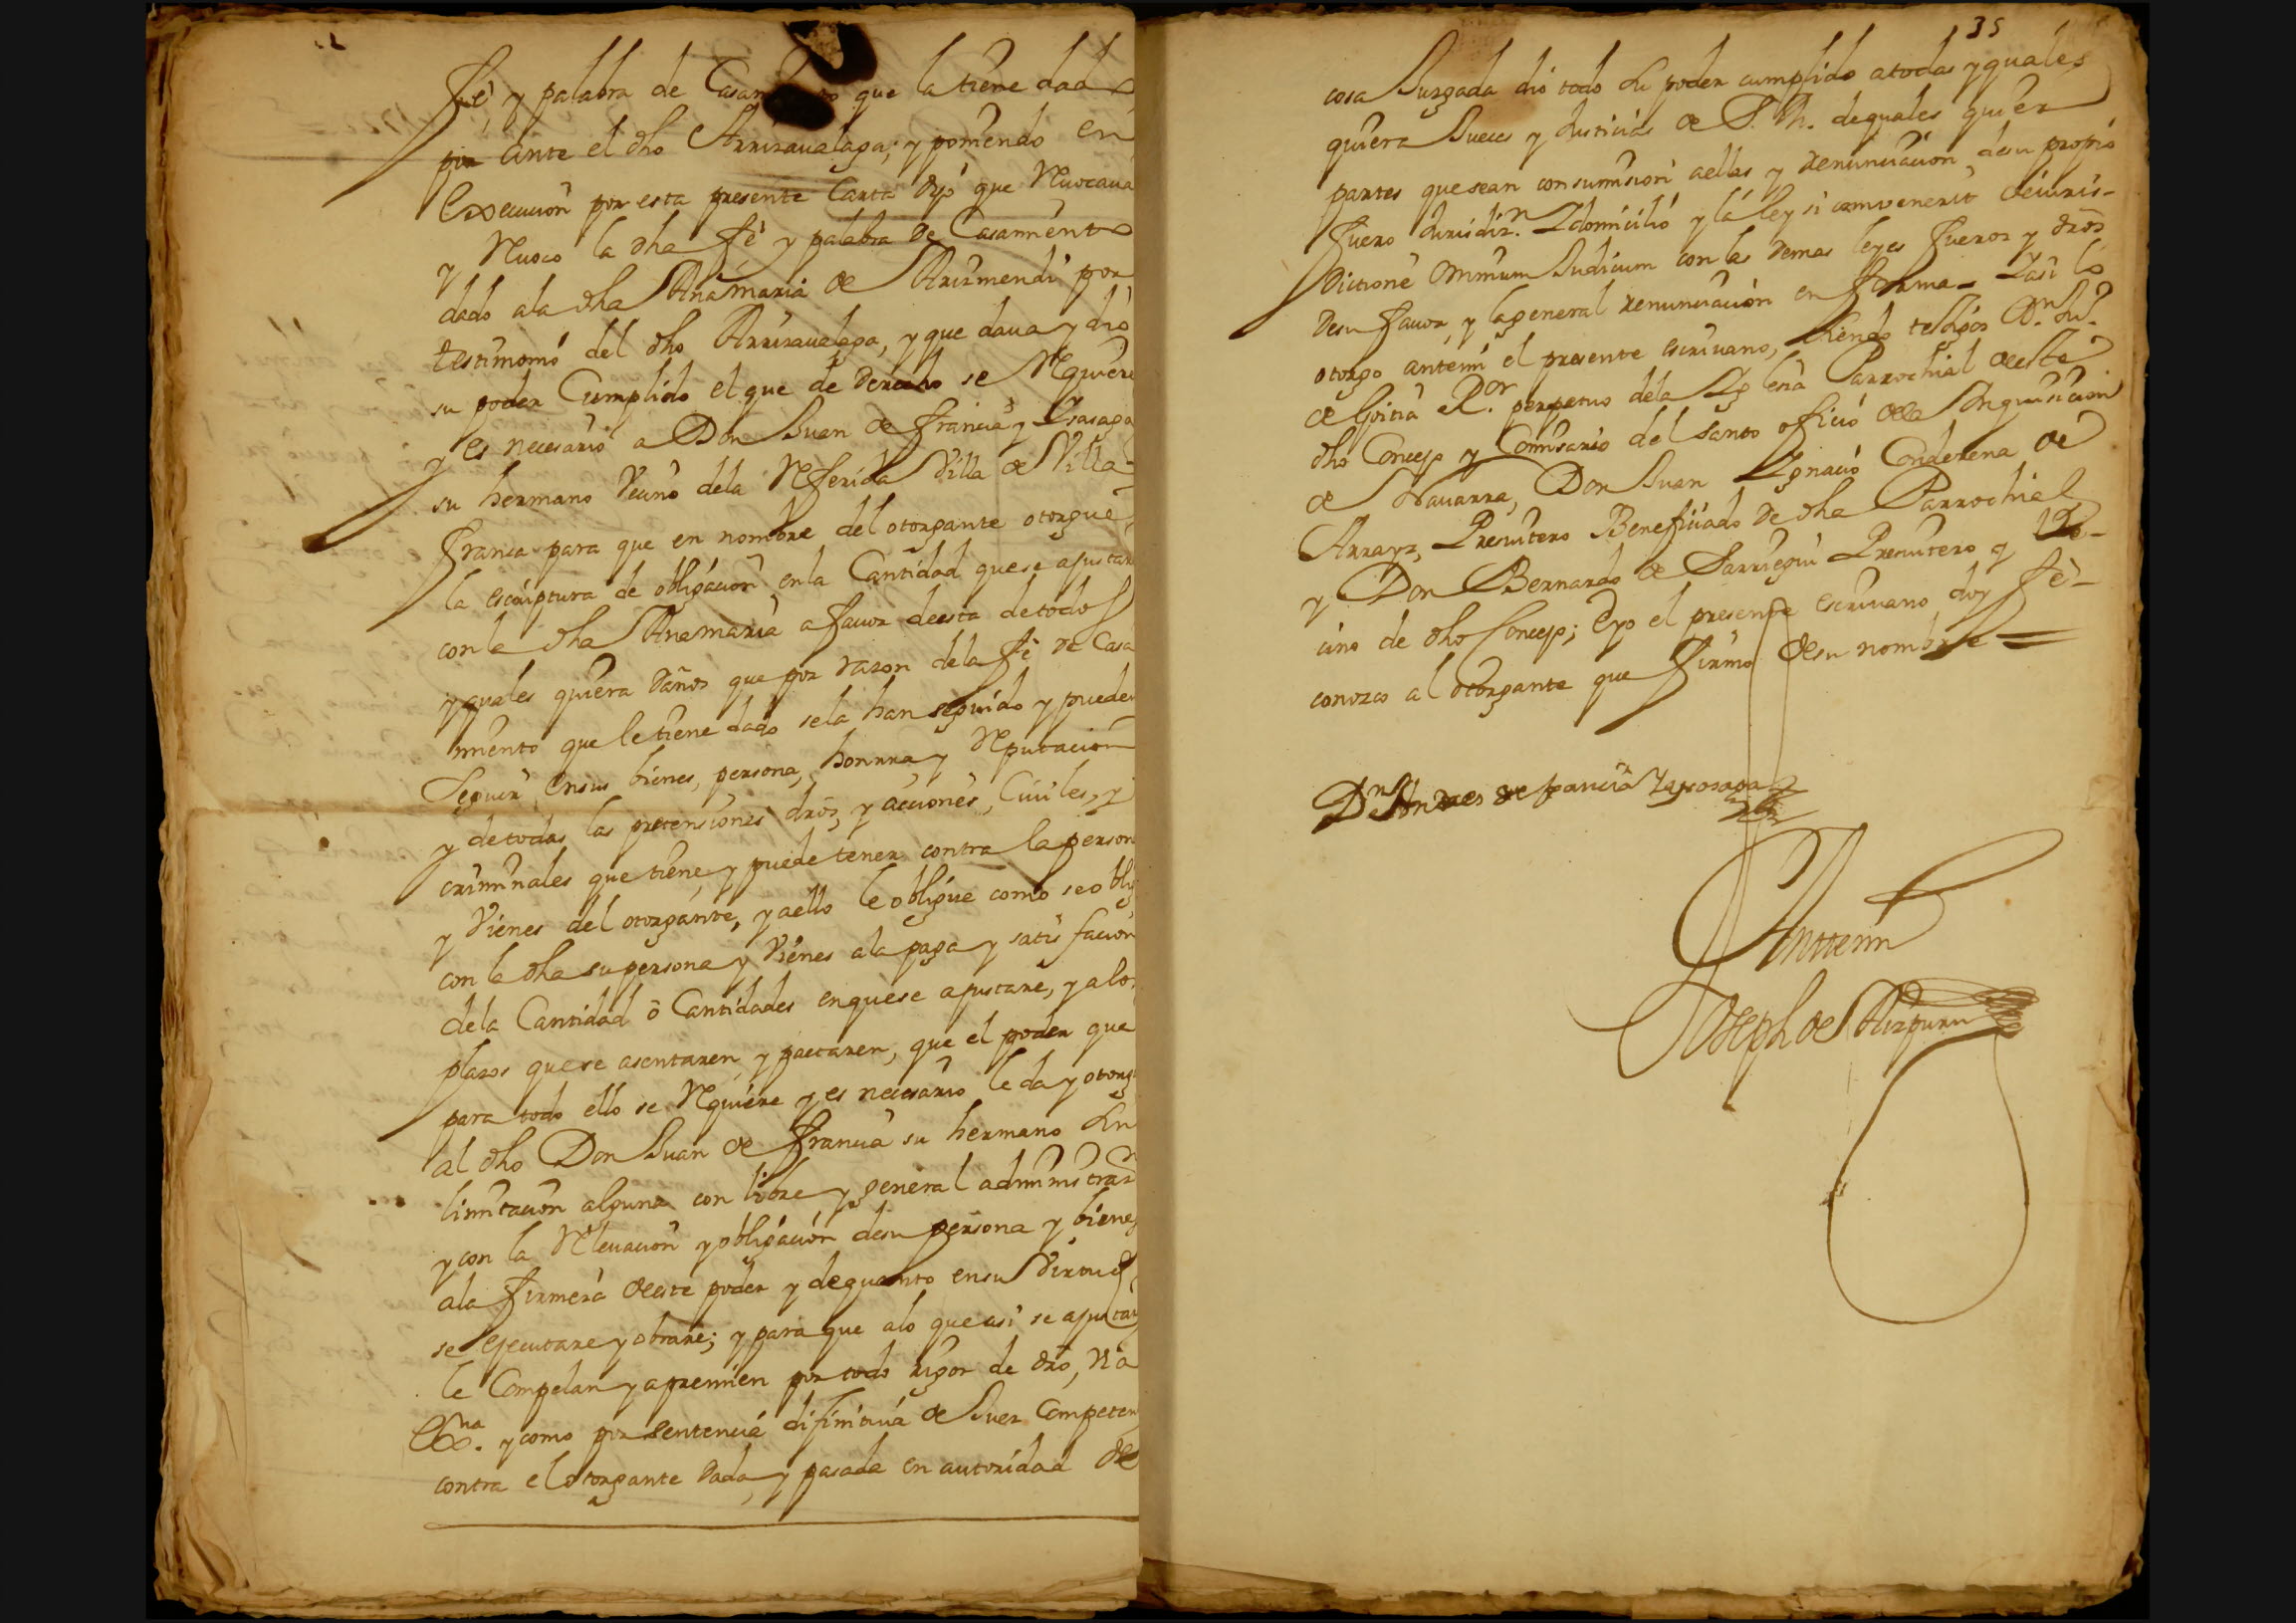 fè, y palabra de Casam to que la tiene dad
por ante el dho Arrizaualaga; y poniendo en
Execucion por esta presente Carta dijo que Reuocaua
y Reuoco la dha fè y palabra de Casamiento
dado ala dha Anamaria de Arizmendi por
testimonio del dho Arrizaualaga, y que daua y dio
su poder Cumplido el que de derecho se Requiere
y es necesario a Don Juan de francia y
su hermano Vecino dela Referida Villa de Villa-
franca para que en nombre del otorgante otorgue
la escriptura de obligacion en la Cantidad quese ajustare
con la dha Anamaria a fauor deesta detodos
y quales quiera daños que por razon dela fè de Casa
miento que le tiene dado sela han seguido y pueden
Seguir ensus bienes, persona, honrra y Reputacion
y detodas las pretensiones dros, y acciones, Ciuiles, y
criminales que tiene y puede tener contra la person
y Vienes del otorgante, y aello le obligue como se obliga
con la dha su persona y Vienes ala paga y satisfacion
dela Cantidad ô Cantidades enquese ajustare, y alos
plazos quese asentaren y pactaren, que el poder que
para todo ello se Requiere y es necesario le da y otorga
al dho Don Juan de francia su hermano Sin
limitacion alguna con libre y general administraz
y con la Releuacion y obligacion desu persona y bienes
ala firmeza deeste poder y dequanto ensu Virtud
se ejecutare y obrare; y para que alo que asi se ajustare
le Compelan y apremien por todo rigor de dro, Via
Exna. y como por sentencia difinitiua de Juez Competen
contra el otorgante dada y pasada en autoridad de
35
cosa Juzgada dio todo Su poder cumplido atodas y quales
quiera Jueces y Justicias de S. M. dequales quier
partes quesean con sumision aellas y renunciacion desu propio
fuero Jurisdizn. Y domicilio y la ley si combenerit deiuris-
dictione Omnium Judicum con las demas leyes fueros y dros
desu fauor, y la general renunciacion en forma- Y asi lo
otorgo antemi el presente escriuano, Siendo testigos Dn. Ju.
de Goitia Ror. perpetuo dela Yglesia Parrochial deeste
dho Concejo y Comisario del santo oficio dela Inquisicion
de Nauarra, Don Juan Ygnacio Conderena de
Arrayz, Presuitero Beneficiado de dha Parrochial
y Don Bernardo de Sarriegui Presuitero y Ve-
cino de dho Concejo; E yo el presente escriuano doy fè-
conozco al otorgante que firmo desu nombre =
Dn Andres de francia
Anttemi
Joseph de Aizpuru